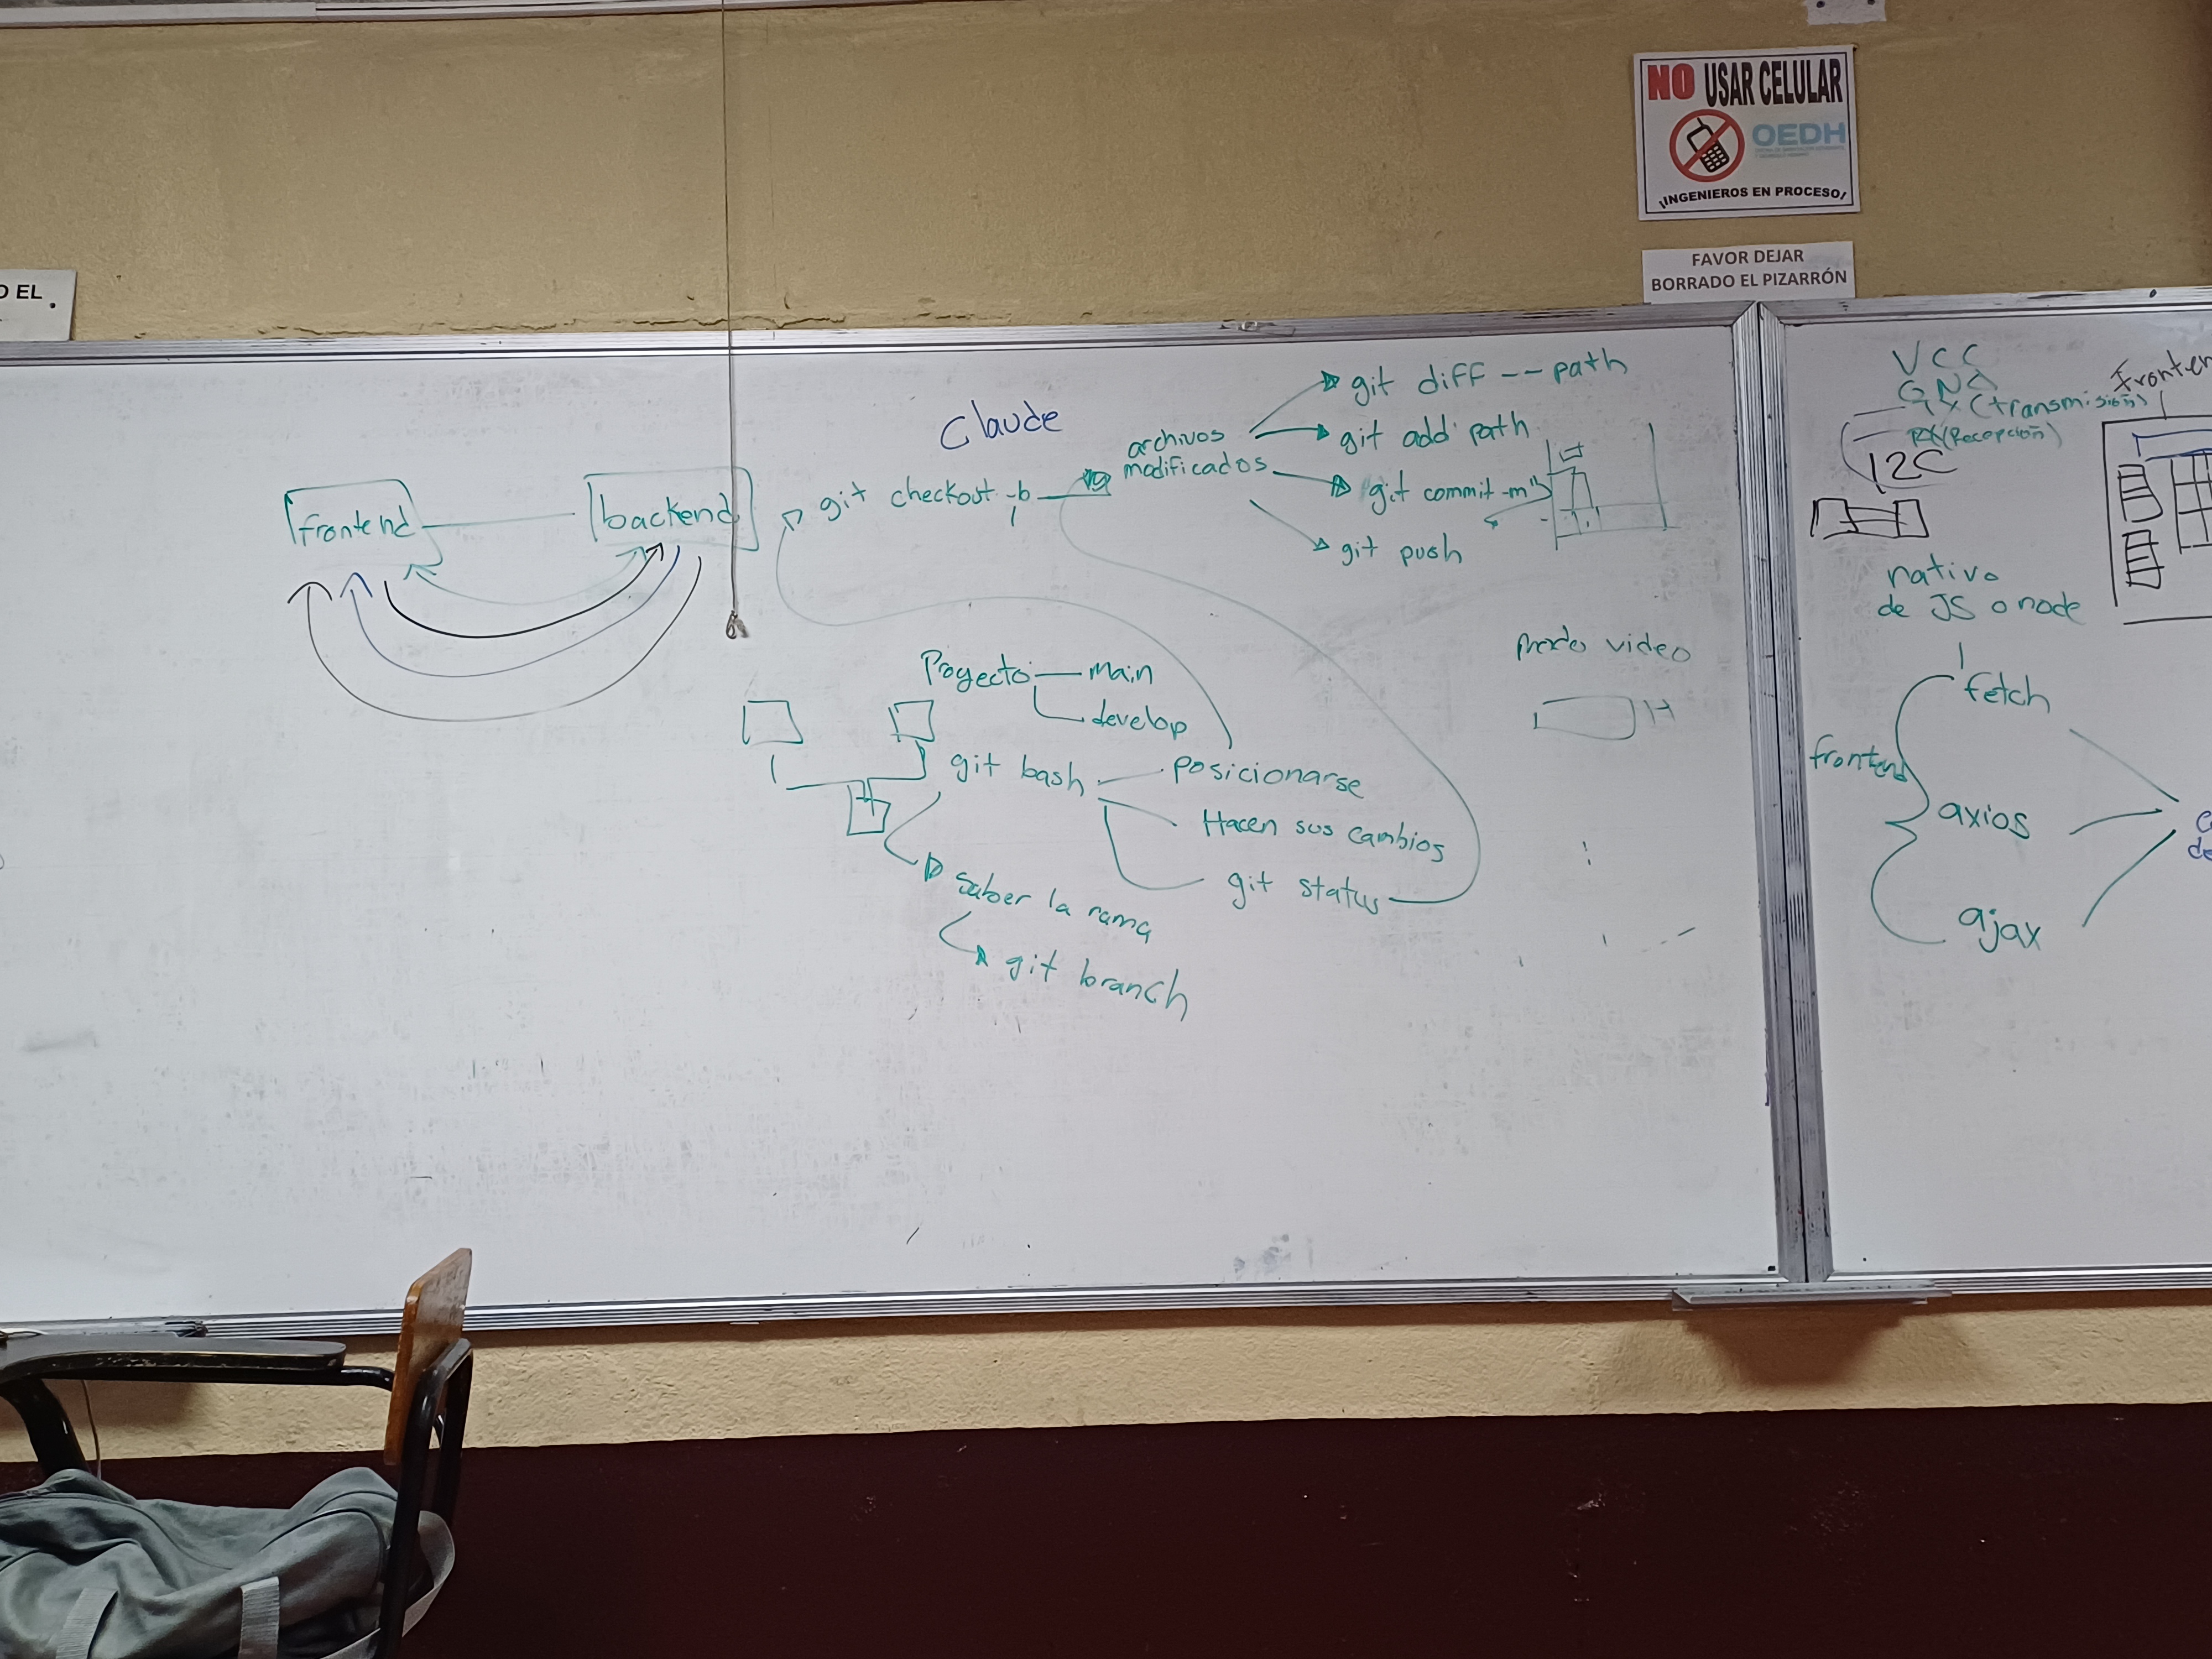 NO USAR CELULAR
OEDH
¡INGENIEROS EN PROCESO!
FAVOR DEJAR
BORRADO EL PIZARRÓN
O EL
Claude
frontend
backend
git checkout -b
archivos
modificados
git diff -- path
git add path
git commit -m"
git push
Proyecto
main
develop
git bash
posicionarse
Hacen sus cambios
git status
saber la rama
git branch
video
VCC
GND
TX (transmisión)
RX (Recepción)
I2C
nativo
de JS o node
frontend
fetch
axios
ajax